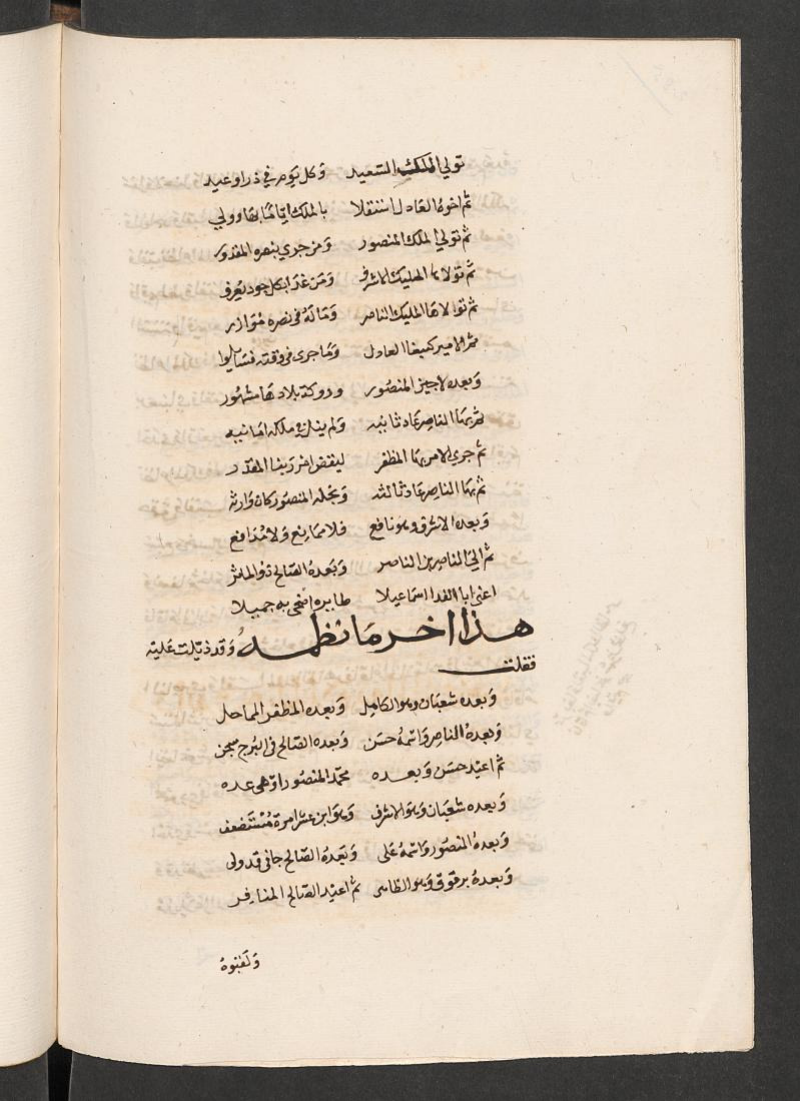 تولي الملك السعيد وكل يوم في ذراه عيد
ثم اخوه العادل استقلا بالملك اياما بها وولي
ثم تولي الملك المنصور ومن جري بنصره المقدور
ثم تولاها المليك الاشرف ومن غدا بكل جود يعرف
ثم توالاها المليك الناصر وماله في نصره موازر
ثم الامير كتبغا العادل وما جري في وقته فسايلوا
وبعده لاجين المنصور ودوركة بلادها مشهور
ثم بها الناصر عاد ثانيه ولم ينل في ملكه امانيه
ثم جري الامر بها المظفر لينقض امر ربنا المقدر
ثم بها الناصر عاد ثالثه ونجله المنصور كان وارثه
وبعده الاشرف وهو نافع فلا ممانع ولا مدافع
ثم الي الناصر بن الناصر وبعده الصالح ذو الماثر
اعني ابا الفدا اسماعيلا طايره اضحي به جميلا
هذا اخر ما نظمه وقد ذيلت عليه
فقلت
وبعده شعبان وهو الكامل وبعده المظفر المماحل
وبعده الناصر واسمه حسن وبعده الصالح في البرج سجن
ثم اعيد حسن وبعده محمد المنصور اوهي عده
وبعده شعبان وهو الاشرف وهو ابن عشر امره مستضعف
وبعده المنصور واسمه علي وبعده الصالح حاجي قد ولي
وبعده برقوق وهو الظاهر ثم اعيد الصالح المنافر
ولقبوه